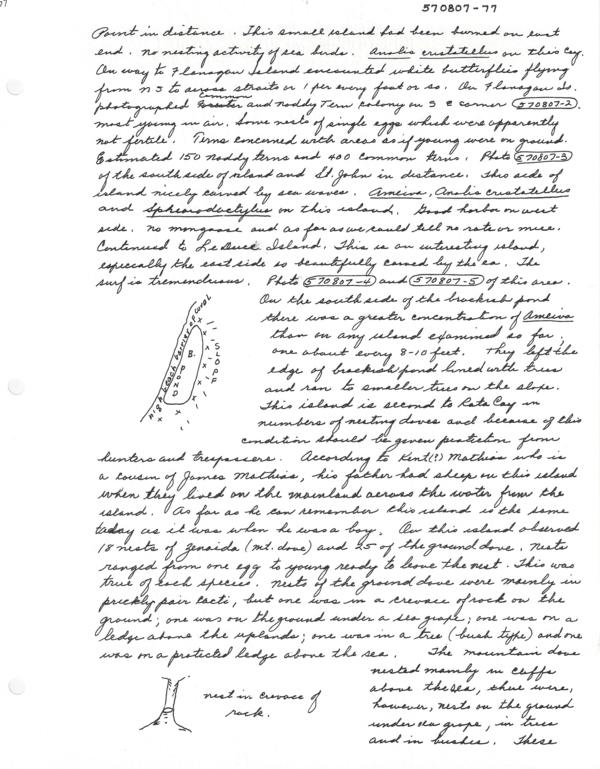 570807-77
Point in distance. This small island had been burned on east
end. No nesting activity of sea birds. Anolis cristatellus on this Cay.
On way to Flanagan Island encountered white butterflies flying
from N S to across straits or 1 per every foot or so. On Flanagan Is.
photographed Common and noddy Tern colony on S E corner (570807-2)
most young in air. Some nests of single eggs which were apparently
not fertile. Terns concerned with areas as if young were on ground.
Estimated 150 noddy terns and 400 common terns. Photo (570807-3)
of the south side of island and St. John in distance. This side of
island nicely carved by sea waves. Ameiva, Anolis cristatellus
and Sphaerodactylus on this island. Good harbor on west
side. No mongoose and as far as we could tell no rats or mice.
Continued to LeDuce Island. This is an interesting island,
especially the east side so beautifully carved by the sea. The
surf is tremendious. Photo (570807-4) and (570807-5) of this area.
On the south side of the brackish pond
there was a greater concentration of Ameiva
than on any island examined so far,
one about every 8-10 feet. They left the
edge of brackish pond lined with trees
and ran to smaller trees on the slope.
This island is second to Rata Cay in
numbers of nesting doves and because of this
condition should be given protection from
HIGH BEACH BARRIER OF CORAL
B POND
SLOPE
hunters and trespassers. According to Kent(?) Mathias who is
a cousin of James Mathias, his father had sheep on this island
when they lived on the mainland across the water from the
island. As far as he can remember this island is the same
today as it was when he was a boy. On this island observed
18 nests of Zenaida (mt. dove) and 25 of the ground dove. Nests
ranged from one egg to young ready to leave the nest. This was
true of each species. Nests of the ground dove were mainly in
prickly pair cacti, but one was in a crevace of rock on the
ground; one was on the ground under a sea grape; one was on a
ledge above the uplands; one was in a tree (bush type) and one
was on a protected ledge above the sea. The mountain dove
nested mainly in cliffs
above the sea, there were,
however, nests on the ground
under sea grape, in trees
and in bushes. These
nest in crevace of
rock.